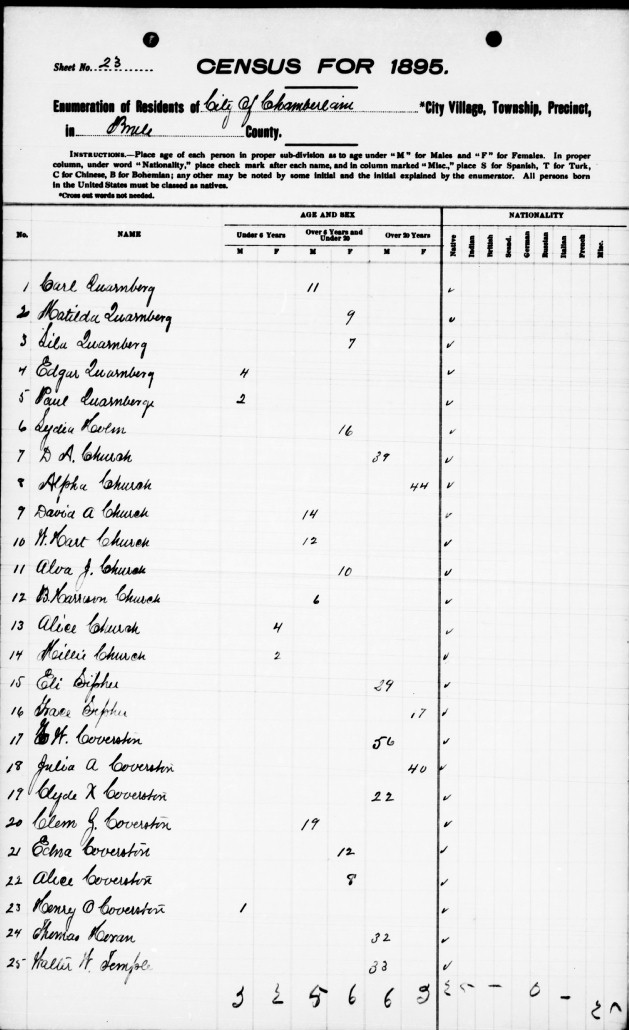 Sheet No. 23
CENSUS FOR 1895.
Enumeration of Residents of City of Chamberlain *City Village, Township, Precinct,
in Brule County.
INSTRUCTIONS.—Place age of each person in proper sub-division as to age under "M" for Males and "F" for Females. In proper
column, under word "Nationality," place check mark after each name, and in column marked "Misc.," place S for Spanish, T for Turk,
C for Chinese, B for Bohemian; any other may be noted by some initial and the initial explained by the enumerator. All persons born
in the United States must be classed as natives.
*Cross out words not needed.
AGE AND SEX NATIONALITY
No. NAME Under 6 Years Over 6 Years and Under 20 Over 20 Years Native Indian British Scand. German Russian Italian French Misc.
M F M F M F
1 Carl Quarnberg 11 ✓
2 Matilda Quarnberg 9 ✓
3 Lila Quarnberg 7 ✓
4 Edgar Quarnberg 4 ✓
5 Paul Quarnberg 2 ✓
6 Lydia Holm 16 ✓
7 D A. Church 39 ✓
8 Alpha Church 44 ✓
9 David A Church 14 ✓
10 W. Hart Church 12 ✓
11 Alva J. Church 10 ✓
12 B. Harrison Church 6 ✓
13 Alice Church 4 ✓
14 Millie Church 2 ✓
15 Eli 29 ✓
16 Grace 17 ✓
17 W. Coverston 56 ✓
18 Julia A Coverston 40 ✓
19 Clyde X Coverston 22 ✓
20 Clem G. Coverston 19 ✓
21 Edna Coverston 12 ✓
22 Alice Coverston 8 ✓
23 Henry O Coverston 1 ✓
24 Thomas Horan 32 ✓
25 Walter W. Temple 33 ✓
3 2 5 6 6 3